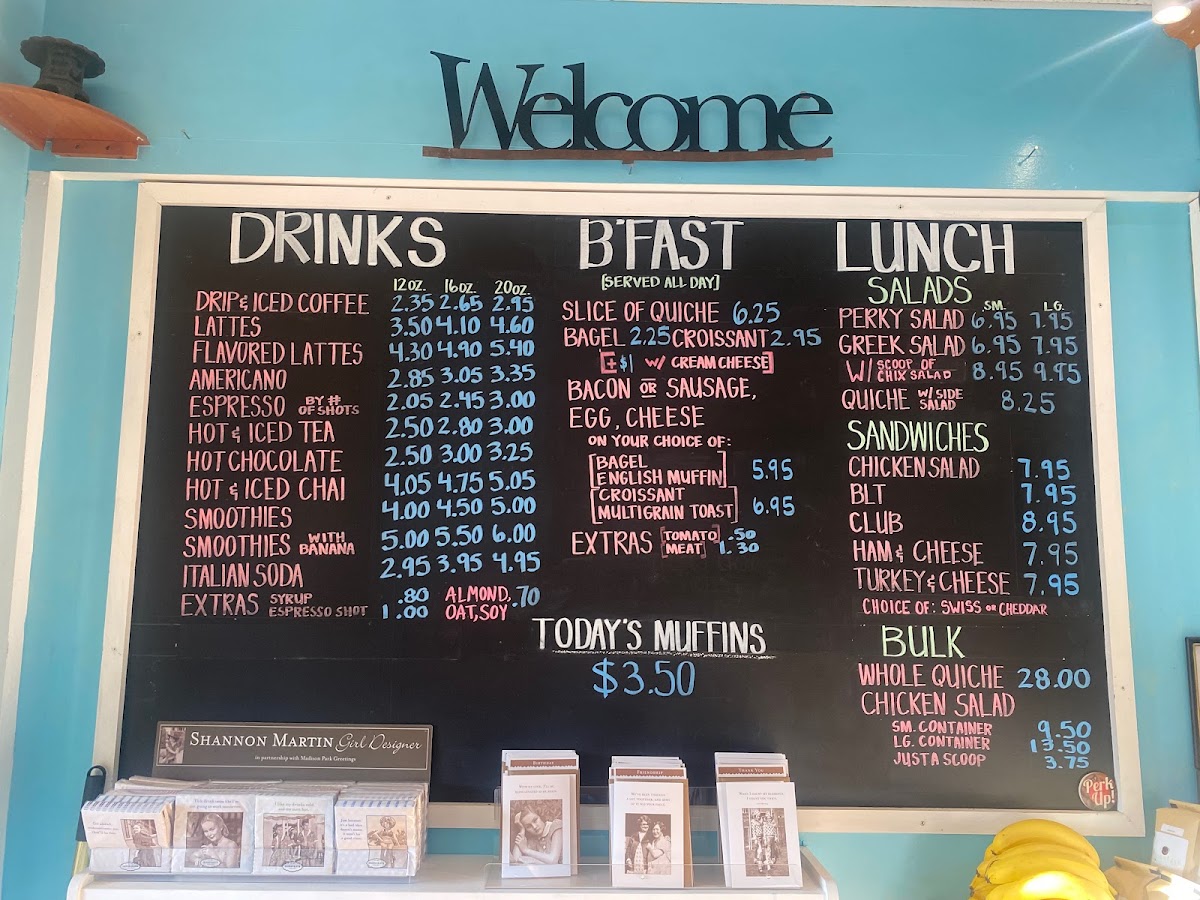 Welcome
DRINKS
12oz. 16oz. 20oz.
DRIP & ICED COFFEE 2.35 2.65 2.95
LATTES 3.50 4.10 4.60
FLAVORED LATTES 4.30 4.90 5.40
AMERICANO 2.85 3.05 3.35
ESPRESSO BY # OF SHOTS 2.05 2.45 3.00
HOT & ICED TEA 2.50 2.80 3.00
HOT CHOCOLATE 2.50 3.00 3.25
HOT & ICED CHAI 4.05 4.75 5.05
SMOOTHIES 4.00 4.50 5.00
SMOOTHIES WITH BANANA 5.00 5.50 6.00
ITALIAN SODA 2.95 3.95 4.95
EXTRAS SYRUP .80
ESPRESSO SHOT 1.00
ALMOND,
OAT, SOY .70
B'FAST
[SERVED ALL DAY]
SLICE OF QUICHE 6.25
BAGEL 2.25 CROISSANT 2.95
[+$1 W/ CREAM CHEESE]
BACON OR SAUSAGE,
EGG, CHEESE
ON YOUR CHOICE OF:
[BAGEL
ENGLISH MUFFIN] 5.95
[CROISSANT
MULTIGRAIN TOAST] 6.95
EXTRAS [TOMATO .50
MEAT] 1.30
TODAY'S MUFFINS
$3.50
LUNCH
SALADS
SM. LG.
PERKY SALAD 6.95 7.95
GREEK SALAD 6.95 7.95
W/ SCOOP OF CHIX SALAD 8.95 9.95
QUICHE W/ SIDE SALAD 8.25
SANDWICHES
CHICKEN SALAD 7.95
BLT 7.95
CLUB 8.95
HAM & CHEESE 7.95
TURKEY & CHEESE 7.95
CHOICE OF: SWISS OR CHEDDAR
BULK
WHOLE QUICHE 28.00
CHICKEN SALAD
SM. CONTAINER 9.50
LG. CONTAINER 13.50
JUST A SCOOP 3.75
Perk Up!
SHANNON MARTIN Girl Designer
in partnership with Madison Park Greetings
BIRTHDAY
FRIENDSHIP
THANK YOU